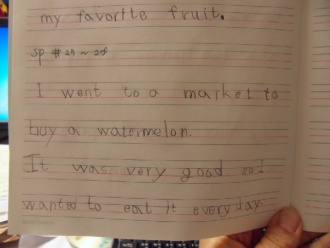 my favorite fruit.
sp #27~28
I went to a market to
buy a watermelon.
It was very good and
wanted to eat it everyday.